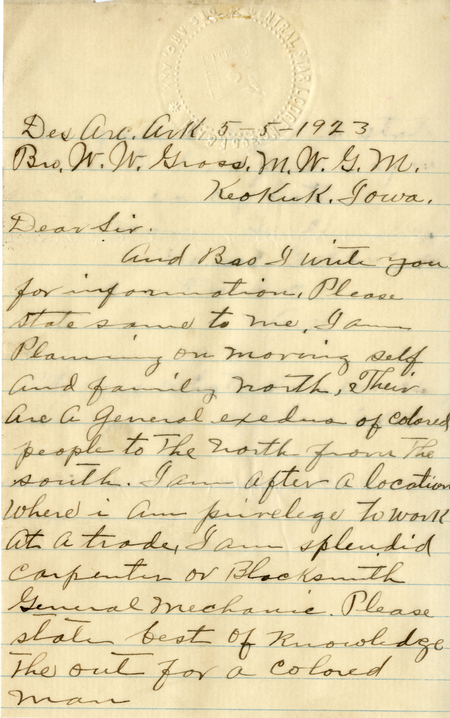 Des Arc. Ark 5-5-1923
Bro. W. W. Gross. M. W. G. M.
Keokuk. Iowa.
Dear Sir.
And Bro I write you
for information, Please
state same to me, I am
Planning on moving self
and family north, Their
are a General exedus of colored
people to the north from the
south. I am after a location
where i am privelege to work
at a trade, I am splendid
carpenter or Blacksmith
General mechanic. Please
state best of Knowledge
the out for a colored
man